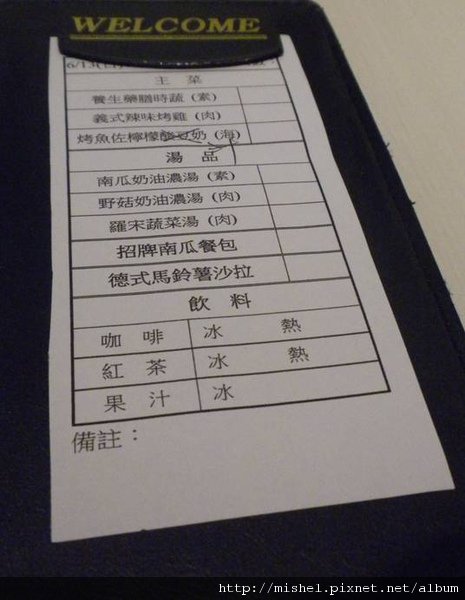 WELCOME
6/13(
主 菜
養生藥膳時蔬 (素)
義式辣味烤雞 (肉)
烤魚佐檸檬酸豆奶 (海)
湯 品
南瓜奶油濃湯 (素)
野菇奶油濃湯 (肉)
羅宋蔬菜湯 (肉)
招牌南瓜餐包
德式馬鈴薯沙拉
飲 料
咖 啡 冰 熱
紅 茶 冰 熱
果 汁 冰
備註：
http://mishel.pixnet.net/album